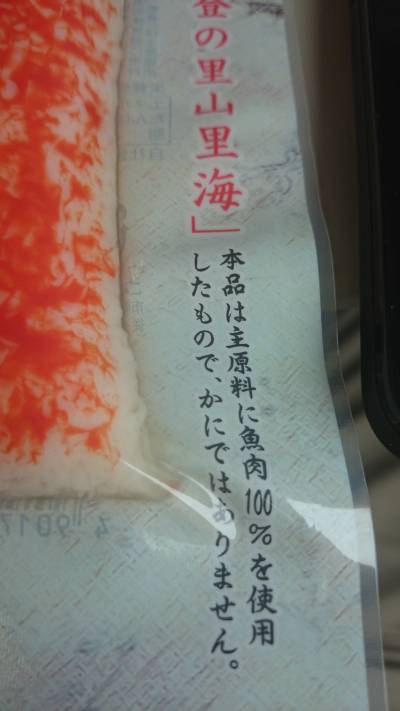 登の里山里海」
本品は主原料に魚肉100%を使用
したもので、かにではありません。